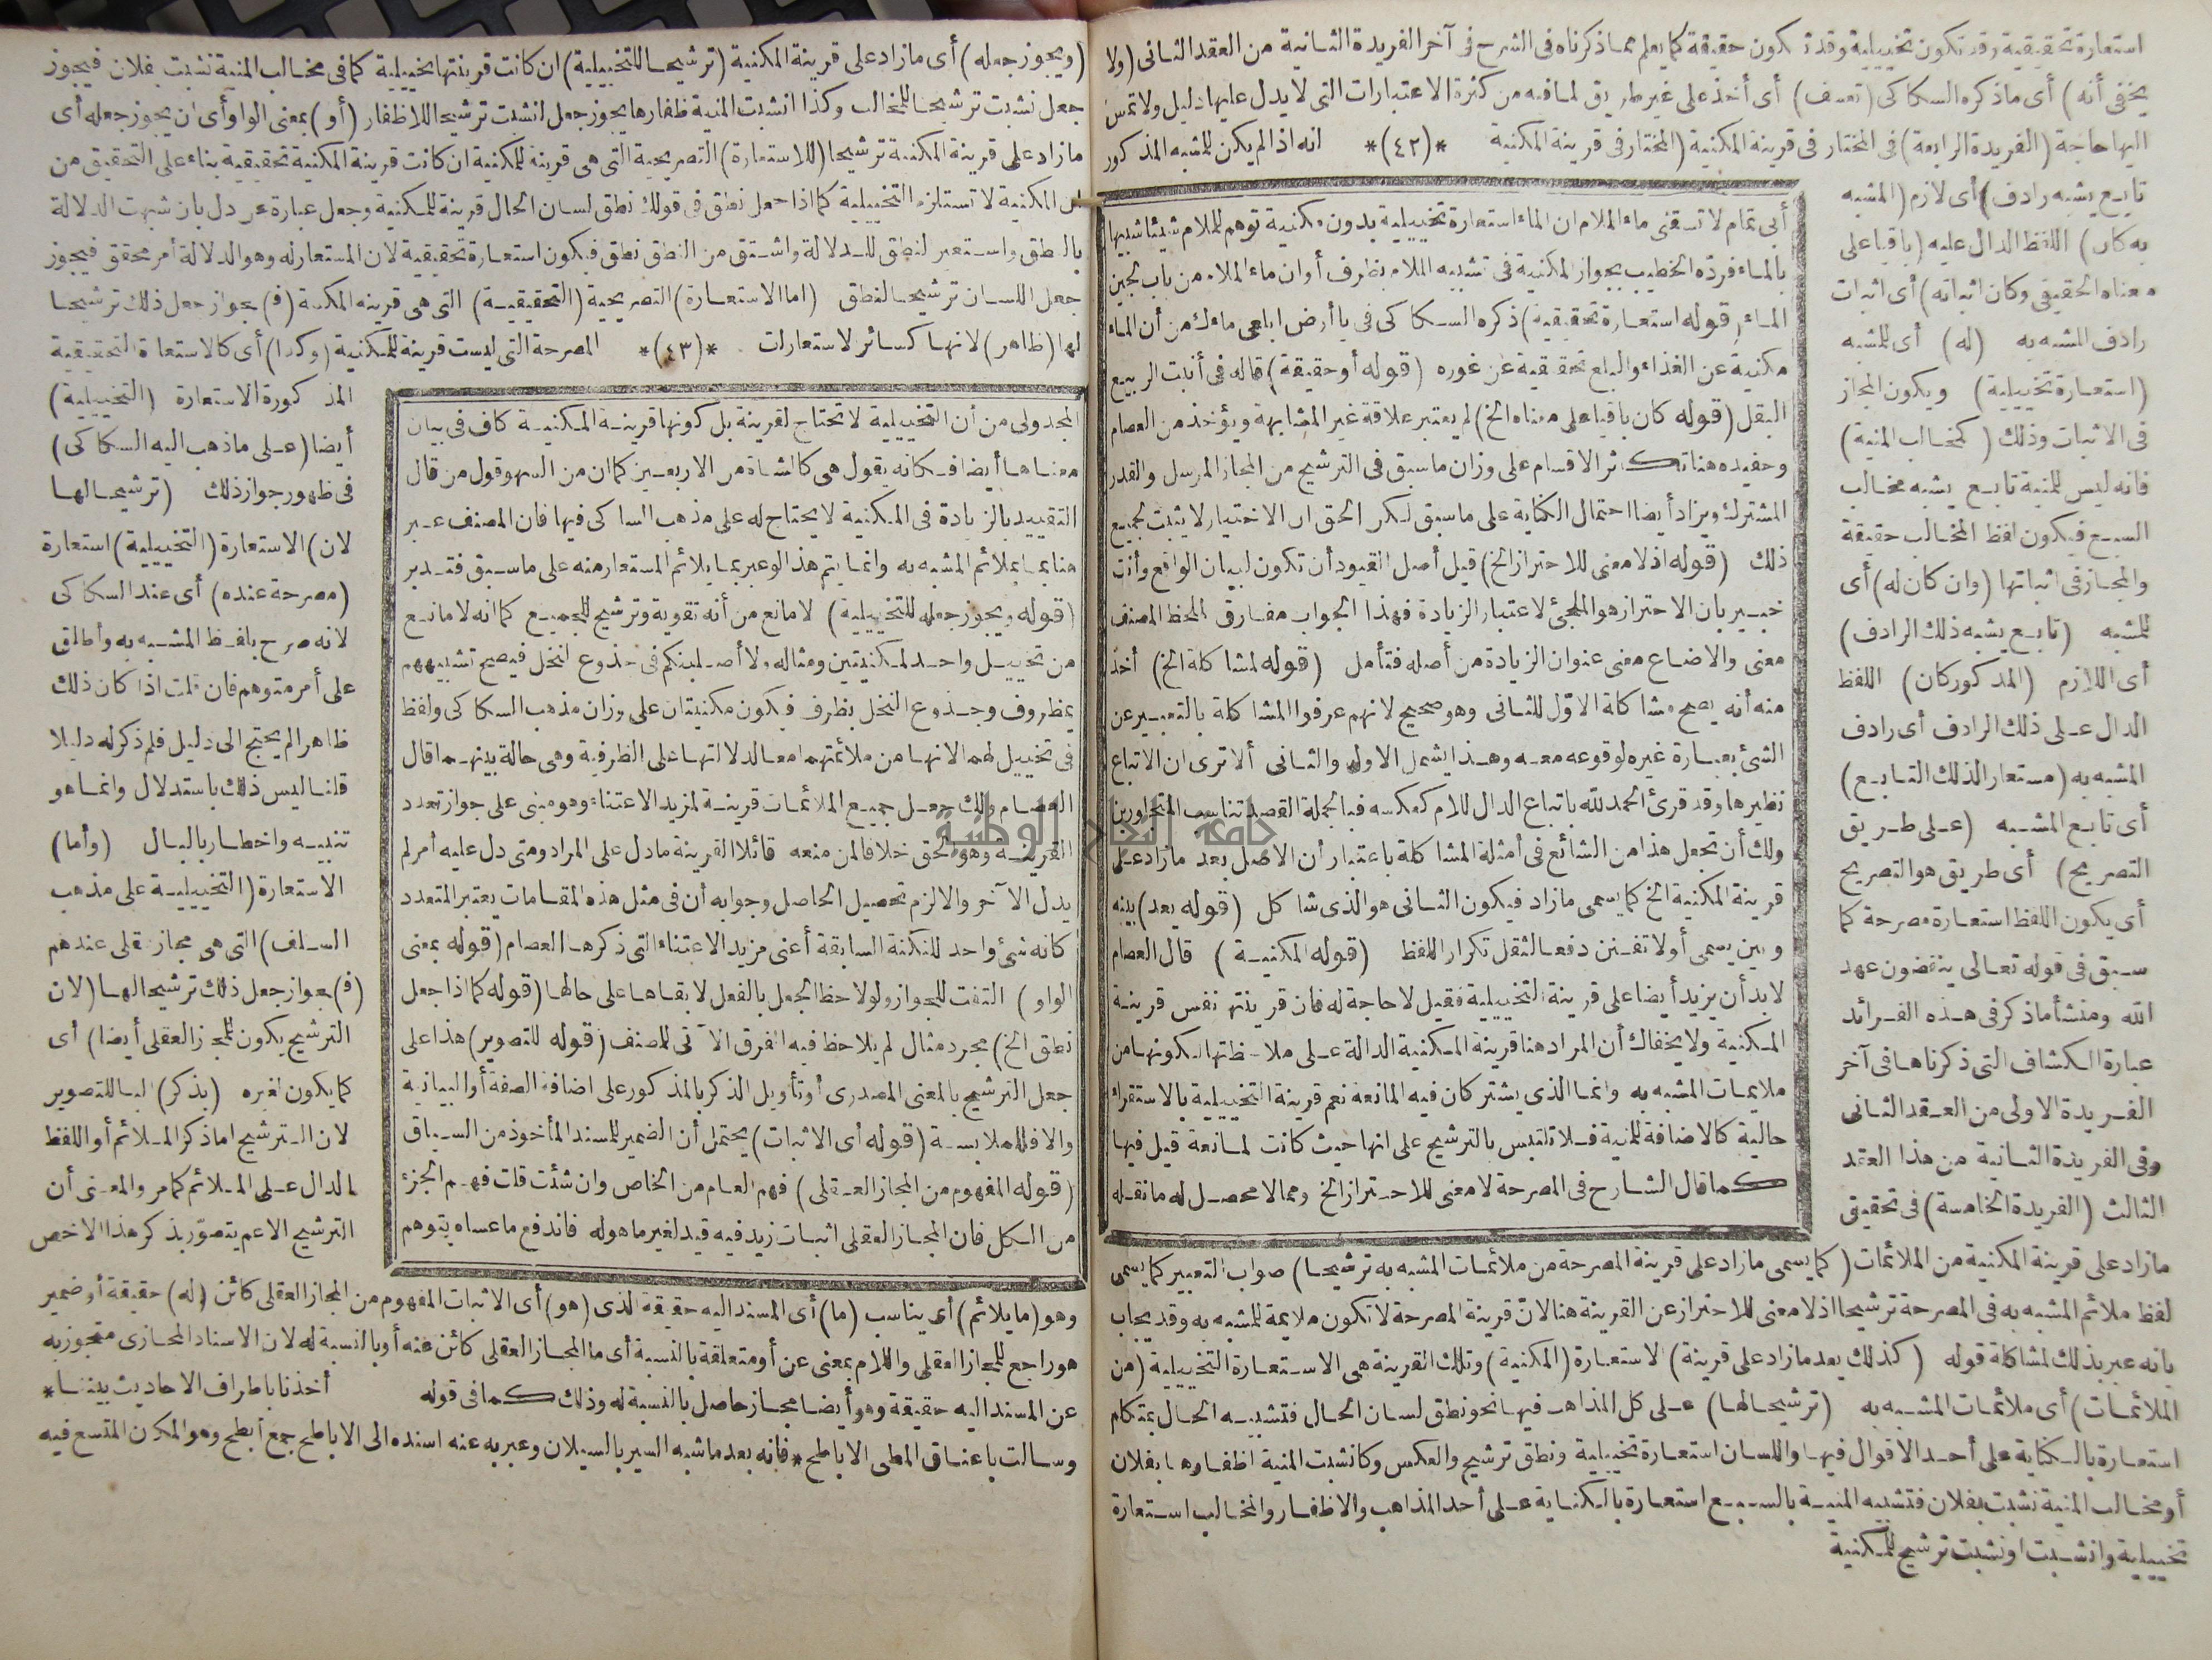 استعارة تحقيقية وقد تكون تخييلية وقد تكون حقيقة كما يعلم مما ذكرناه في الشرح في آخر الفريدة الثانية من العقد الثاني (ولا
يخفى أنه) أي ما ذكره السكاكي (تعسف) أي أخذ على غير طريق لما فيه من كثرة الاعتبارات التي لا يدل عليها دليل ولا تمس
اليها حاجة (الفريدة الرابعة) في المختار في قرينة المكنية (المختار في قرينة المكنية *(٤٢)* انه اذا لم يكن للمشبه المذكور
تابع يشبه رادف) أي لازم (المشبه
به كان) اللفظ الدال عليه (باقيا على
معناه الحقيقي وكان اثباته) أي اثبات
رادف المشبه به (له) أي للمشبه
(استعارة تخييلية) ويكون المجاز
في الاثبات وذلك (كمخالب المنية)
فانه ليس للمنية تابع يشبه مخالب
السبع فيكون لفظ المخالب حقيقة
والمجاز في اثباتها (وان كان له) أي
للمشبه (تابع يشبه ذلك الرادف)
أي اللازم (المذكور كان) اللفظ
الدال على ذلك الرادف أي رادف
المشبه به (مستعارا لذلك التابع)
أي تابع المشبه (على طريق
التصريح) أي طريق هو التصريح
أي يكون اللفظ استعارة مصرحة كما
سبق في قوله تعالى ينقضون عهد
الله ومنشأ ما ذكر في هذه الفرائد
عبارة الكشاف التي ذكرناها في آخر
الفريدة الاولى من العقد الثاني
وفي الفريدة الثانية من هذا العقد
الثالث (الفريدة الخامسة) في تحقيق
أبي تمام لا تسقني ماء الملام ان الماء استعارة تخييلية بدون مكنية توهم للملام شيئا شبيها
بالماء فرده الخطيب بجواز المكنية في تشبيه الملام بظرف أو ان ماء الملام من باب لجين
الماء (قوله استعارة تحقيقية) ذكره السكاكي في يا أرض ابلعي ماءك من أن الماء
مكنية عن الغذاء والبلع تحقيقية عن غوره (قوله أو حقيقة) قاله في أنبت الربيع
البقل (قوله كان باقيا على معناه الخ) لم يعتبر علاقة غير المشابهة ويؤخذ من العصام
وحفيده هنا تكثر الاقسام على وزان ما سبق في الترشيح من المجاز المرسل والقدر
المشترك ويزاد أيضا احتمال الكناية على ما سبق لكن الحق ان الاختيار لا يثبت لجميع
ذلك (قوله اذ لا معنى للاحتراز الخ) قيل أصل القيود أن تكون لبيان الواقع وأنت
خبير بان الاحتراز هو الملجئ لاعتبار الزيادة فهذا الجواب مفارق للحظ المصنف
معنى والاضاع معنى عنوان الزيادة من أصله فتأمل (قوله لمشاكلة الخ) أخذ
منه أنه يصح مشاكلة الاول للثاني وهو صحيح لانهم عرفوا المشاكلة بالتعبير عن
الشئ بعبارة غيره لوقوعه معه وهذا يشمل الاول والثاني ألا ترى ان الاتباع
نظيرها وقد قرئ الحمد لله باتباع الدال للام كعكسه فبالجملة القصد تناسب المتجاورين
ولك أن تجعل هذا من الشائع في أمثلة المشاكلة باعتبار أن الاصل بعد ما زاد على
قرينة المكنية الخ كما يسمى ما زاد فيكون الثاني هو الذي شاكل (قوله يعد) بينه
وبين يسمى أولا تفنن دفعا لثقل تكرار اللفظ (قوله المكنية) قال العصام
لا بد أن يزيد أيضا على قرينة التخييلية فقيل لا حاجة له فان قرينتها نفس قرينة
المكنية ولا يخفاك أن المراد هنا قرينة المكنية الدالة على ملاحظتها لكونها من
ملايمات المشبه به وانما الذي يشتركان فيه المانعة نعم قرينة التخييلية بالاستقراء
حالية كالاضافة للمنية فلا تلتبس بالترشيح على انها حيث كانت لمانعة قيل فيها
كما قال الشارح في المصرحة لا معنى للاحتراز الخ ومما لا محصل له ما نقله
ما زاد على قرينة المكنية من الملائمات (كما يسمى ما زاد على قرينة المصرحة من ملائمات المشبه به ترشيحا) صواب التعبير كما يسمى
لفظ ملائم المشبه به في المصرحة ترشيحا اذ لا معنى للاحتراز عن القرينة هنا لان قرينة المصرحة لا تكون ملايمة للمشبه به وقد يجاب
بانه عبر بذلك لمشاكلة قوله (كذلك يعد ما زاد على قرينة) الاستعارة (المكنية) وتلك القرينة هي الاستعارة التخييلية (من
الملائمات) أي ملائمات المشبه به (ترشيحا لها) على كل المذاهب فيها نحو نطق لسان الحال فتشبيه الحال بمتكلم
استعارة بالكناية على أحد الاقوال فيها واللسان استعارة تخييلية ونطق ترشيح والعكس وكأنشبت المنية أظفارها بفلان
أو مخالب المنية نشبت بفلان فتشبيه المنية بالسبع استعارة بالكناية على أحد المذاهب والاظفار والمخالب استعارة
تخييلية وانشبت او نشبت ترشيح للمكنية
(ويجوز جعله) أي ما زاد على قرينة المكنية (ترشيحا للتخييلية) ان كانت قرينتها تخييلية كما في مخالب المنية نشبت بفلان فيجوز
جعل نشبت ترشيحا للمخالب وكذا انشبت المنية ظفارها يجوز جعل انشبت ترشيحا للاظفار (أو) بمعنى الواو أي ان يجوز جعله أي
ما زاد على قرينة المكنية ترشيحا (للاستعارة) التصريحية التي هي قرينة للمكنية ان كانت قرينة المكنية تحقيقية بناء على التحقيق من
ان المكنية لا تستلزم التخييلية كما اذا جعل نطق في قولك نطق لسان الحال قرينة للمكنية وجعل عبارة عن دل بان شبهت الدلالة
بالنطق واستعير النطق للدلالة واشتق من النطق نطق فيكون استعارة تحقيقية لان المستعار له وهو الدلالة أمر محقق فيجوز
جعل اللسان ترشيحا لنطق (اما الاستعارة) التصريحية (التحقيقية) التي هي قرينة المكنية (ف) جواز جعل ذلك ترشيحا
لها (ظاهر) لانها كسائر الاستعارات *(٤٣)* المصرحة التي ليست قرينة للمكنية (وكذا) أي كالاستعارة التحقيقية
المذكورة الاستعارة (التخييلية)
أيضا (على ما ذهب اليه السكاكي)
في ظهور جواز ذلك (ترشيحا لها
لان) الاستعارة (التخييلية) استعارة
(مصرحة عنده) أي عند السكاكي
لانه صرح بلفظ المشبه به وأطلق
على أمر متوهم فان قلت اذا كان ذلك
ظاهرا لم يحتج الى دليل فلم ذكر له دليلا
قلنا ليس ذلك باستدلال وانما هو
تنبيه واخطار بالبال (وأما)
الاستعارة (التخييلية على مذهب
السلف) التي هي مجاز عقلي عندهم
(ف) جواز جعل ذلك ترشيحا لها (لان
الترشيح يكون للمجاز العقلي أيضا) أي
كما يكون لغيره (بذكر) الباء للتصوير
لان الترشيح اما ذكر الملائم أو اللفظ
الدال على الملائم كما مر والمعنى أن
الترشيح الاعم يتصور بذكر هذا الاخص
المجدولى من أن التخييلية لا تحتاج لقرينة بل كونها قرينة المكنية كاف في بيان
معناها أيضا فكانه يقول هي كالشاة من الاربعين كما ان من السهو قول من قال
التقييد بالزيادة في المكنية لا يحتاج له على مذهب السكاكي فيها فان المصنف عبر
هنا بما يلائم المشبه به وانما يتم هذا لو عبر بما يلائم المستعار منه على ما سبق فتدبر
(قوله ويجوز جعله للتخييلية) لا مانع من أنه تقوية وترشيح للجميع كما انه لا مانع
من تخييل واحد لمكنيتين ومثاله ولأصلبنكم في جذوع النخل فيصح تشبيههم
بمظروف وجذوع النخل بظرف فيكون مكنيتان على وزان مذهب السكاكي ولفظ
في تخييل لهما لانها من ملائمتهما معا لدلالتها على الظرفية وهي حالة بينهما قال
العصام ولك جعل جميع الملائمات قرينة لمزيد الاعتناء وهو مبني على جواز تعدد
القرينة وهو الحق خلافا لمن منعه قائلا القرينة ما دل على المراد ومتى دل عليه أمر لم
يدل الآخر والا لزم تحصيل الحاصل وجوابه أن في مثل هذه المقامات يعتبر المتعدد
كانه شئ واحد للنكتة السابقة أعني مزيد الاعتناء التي ذكرها العصام (قوله بمعنى
الواو) التفت للجواز ولو لاحظ الجعل بالفعل لابقاها على حالها (قوله كما اذا جعل
نطق الخ) مجرد مثال لم يلاحظ فيه الفرق الآتي للمصنف (قوله للتصوير) هذا على
جعل الترشيح بالمعنى المصدري أو تأويل الذكر بالمذكور على اضافة الصفة أو البيانية
والا فللملابسة (قوله أي الاثبات) يحتمل أن الضمير للمسند المأخوذ من السياق
(قوله المفهوم من المجاز العقلي) فهم العام من الخاص وان شئت قلت فهم الجزء
من الكل فان المجاز العقلي اثبات زيد فيه قيد لغير ما هو له فاندفع ما عساه يتوهم
وهو (ما يلائم) أي يناسب (ما) أي المسند اليه حقيقة الذي (هو) أي الاثبات المفهوم من المجاز العقلي كائن (له) حقيقة أو ضمير
هو راجع للمجاز العقلي واللام بمعنى عن أو متعلقة بالنسبة أي ما المجاز العقلي كائن عنه أو بالنسبة له لان الاسناد المجازي متجوز به
عن المسند اليه حقيقة وهو أيضا مجاز حاصل بالنسبة له وذلك كما في قوله أخذنا باطراف الاحاديث بيننا *
وسالت باعناق المطي الاباطح * فانه بعد ما شبه السير بالسيلان وعبر به عنه اسنده الى الاباطح جمع أبطح وهو المكان المتسع فيه
جامعة النجاح الوطنية